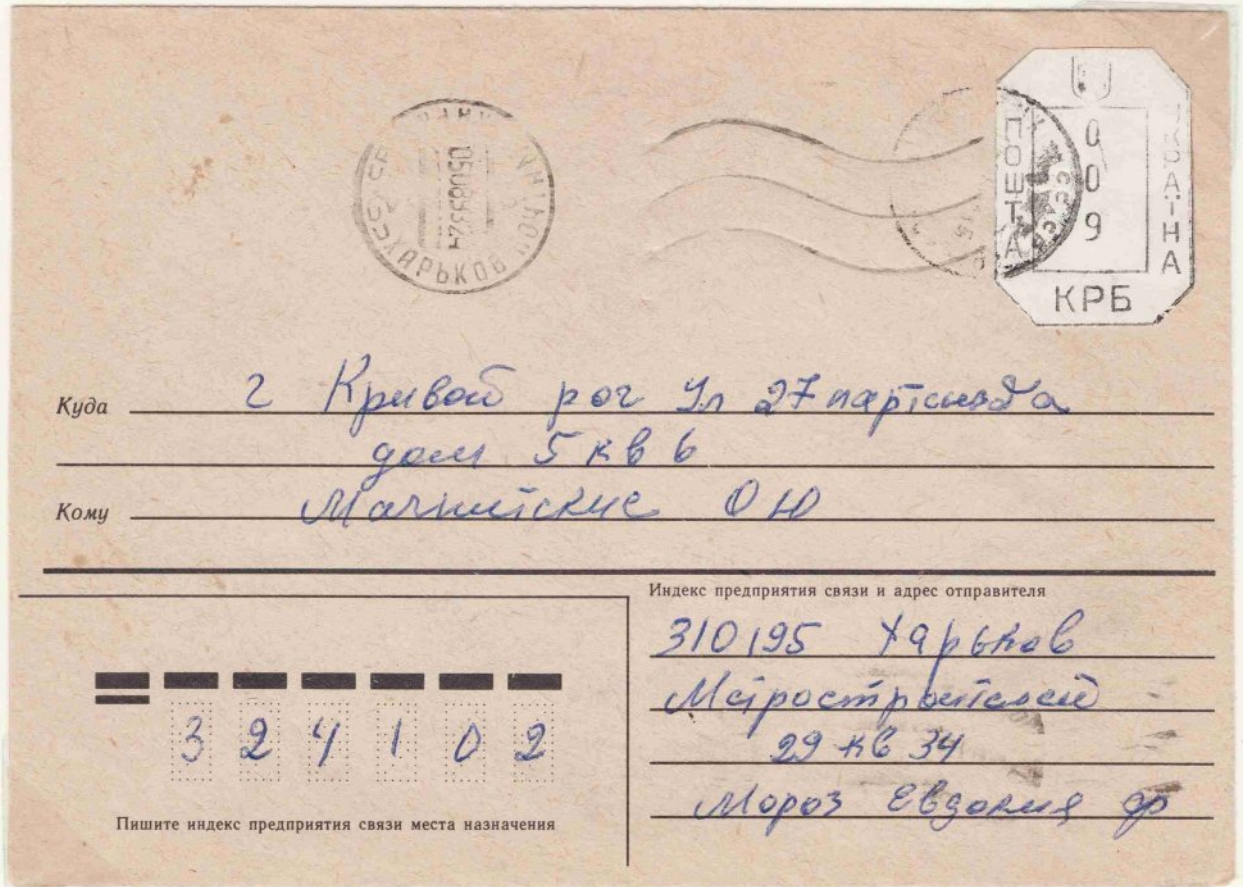 ХАРЬКОВ
05089324
ПОШТА
009
КРБ
Куда г Кривой рог Ул 27 партсъезда
дом 5 кв 6
Кому ОЮ
Индекс предприятия связи и адрес отправителя
310195 Харьков
Метростроителей
29 кв 34
Мороз Евдокия Ф
324102
Пишите индекс предприятия связи места назначения